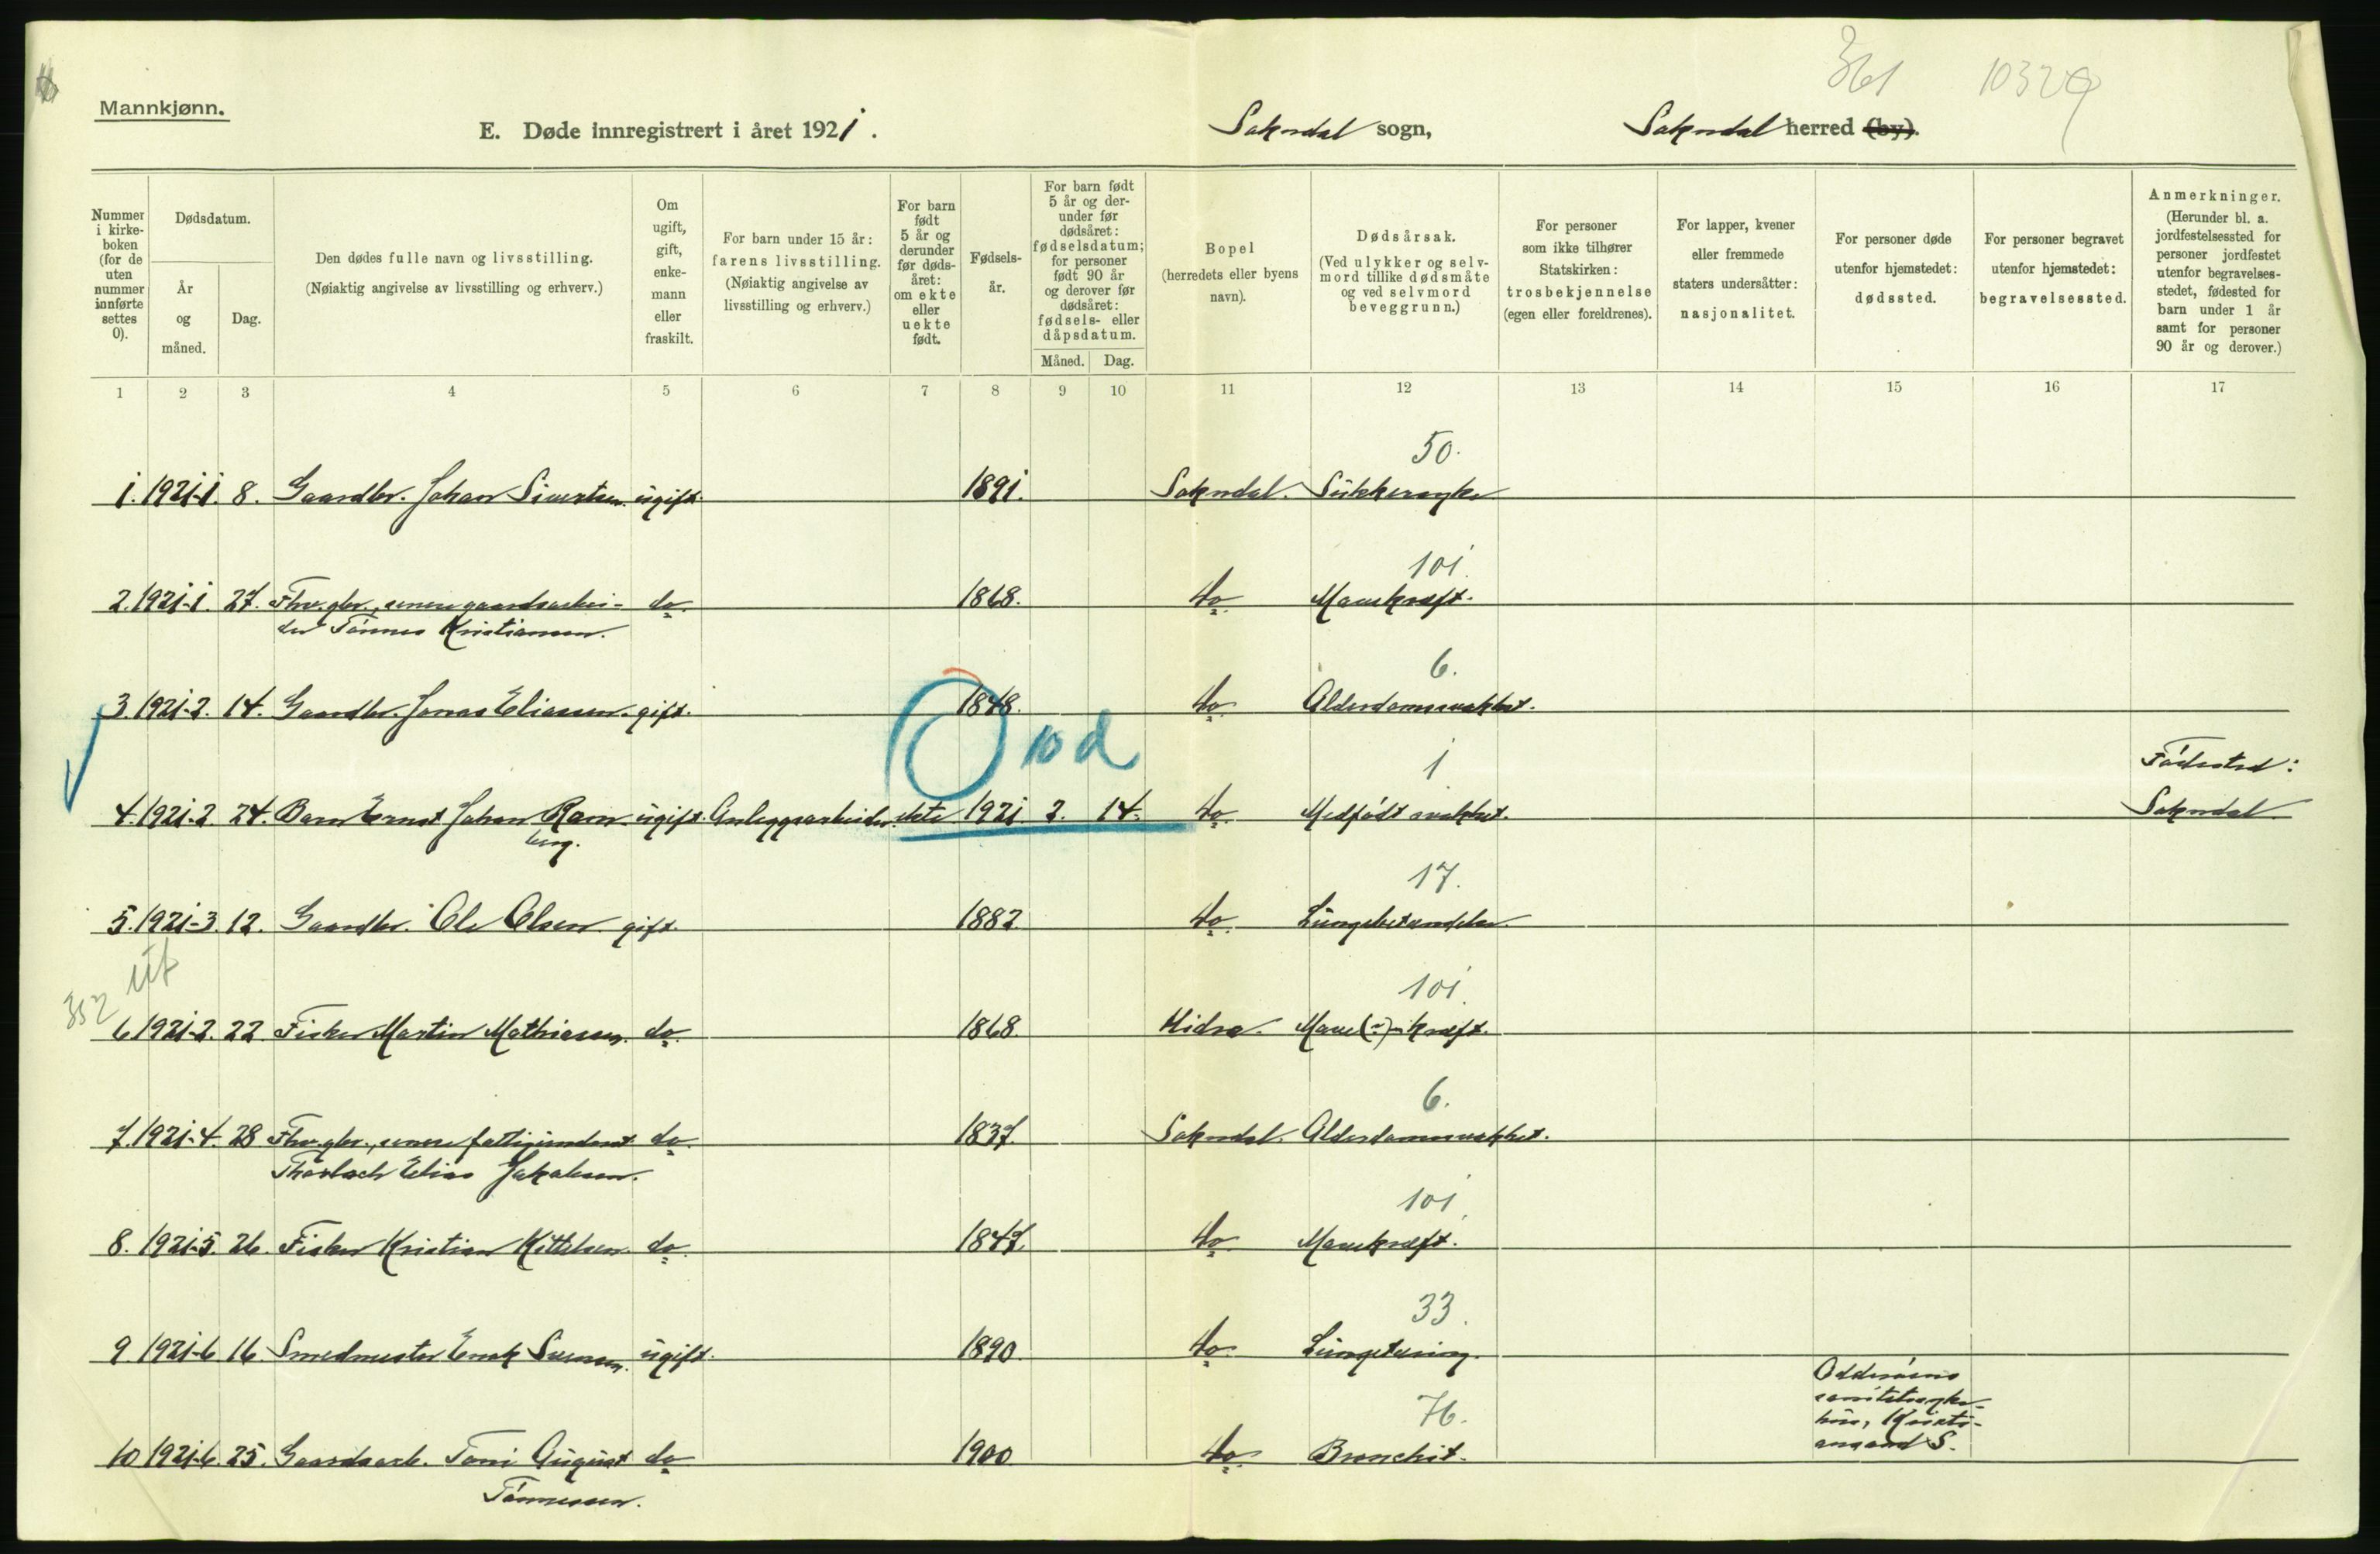 361 10329
Mannkjønn.
E. Døde innregistrert i året 1921.
Sokndal sogn,
Sokndal herred (by).
Nummer i kirke-boken (for de uten nummer innførte settes 0).
Dødsdatum.
År og måned.
Dag.
Den dødes fulle navn og livsstilling.
(Nøiaktig angivelse av livsstilling og erhverv.)
Om ugift, gift, enke-mann eller fraskilt.
For barn under 15 år: farens livsstilling.
(Nøiaktig angivelse av livsstilling og erhverv.)
For barn født 5 år og derunder før døds-året: om ekte eller uekte født.
Fødsels-år.
For barn født 5 år og der-under før dødsåret: fødselsdatum; for personer født 90 år og derover før dødsåret: fødsels- eller dåpsdatum.
Måned. Dag.
Bopel (herredets eller byens navn).
Dødsårsak.
(Ved ulykker og selv-mord tillike dødsmåte og ved selvmord beveggrunn.)
For personer som ikke tilhører Statskirken: trosbekjennelse (egen eller foreldrenes).
For lapper, kvener eller fremmede staters undersåtter: nasjonalitet.
For personer døde utenfor hjemstedet: dødssted.
For personer begravet utenfor hjemstedet: begravelsessted.
Anmerkninger.
(Herunder bl. a. jordfestelsessted for personer jordfestet utenfor begravelses-stedet, fødested for barn under 1 år samt for personer 90 år og derover.)
1 2 3 4 5 6 7 8 9 10 11 12 13 14 15 16 17
50.
1. 1921-1. 8. Gaardbr. Johan Sivertsen. ugift. 1891. Sokndal. Sukkersyke
101.
2. 1921-1. 27. Fhv. gbr., senere gaardsarbei- do. 1868. do. Mavekræft.
der Tønnes Kristiansen.
6.
3. 1921-2. 14. Gaardbr. Jonas Eliassen. gift. 1848. do. Alderdomssvakhet.
10 d
1
Fødested:
4. 1921-2. 24. Barn Ernst Johan Ram- ugift. Anleggsarbeider. ekte 1921. 2. 14. do. Medfødt svakhet. Sokndal.
berg.
17.
5. 1921-3. 12. Gaardbr. Ole Olsen. gift. 1882. do. Lungebetændelse.
ut
352
101.
6. 1921-2. 22. Fisker Martin Mathiassen. do. 1868. Hidra. Mave(?)-kræft.
6.
7. 1921-4. 28 Fhv. gbr., senere fattigunderst. do. 1837. Sokndal. Alderdomssvakhet.
Elias Jakobsen.
101.
8. 1921-5. 26. Fisker Kristian Kittelsen. do. 1847. do. Mavekræft.
33.
9 1921-6 16. Smedmester Enok Svensen. ugift. 1890. do. Lungetæring.
76.
Oddernæs
sanitetssyke-
hus, Kristi-
ansand S.
10 1921-6. 25. Gaardsarb. Toni August do. 1900 do. Bronchit.
Tønnessen.